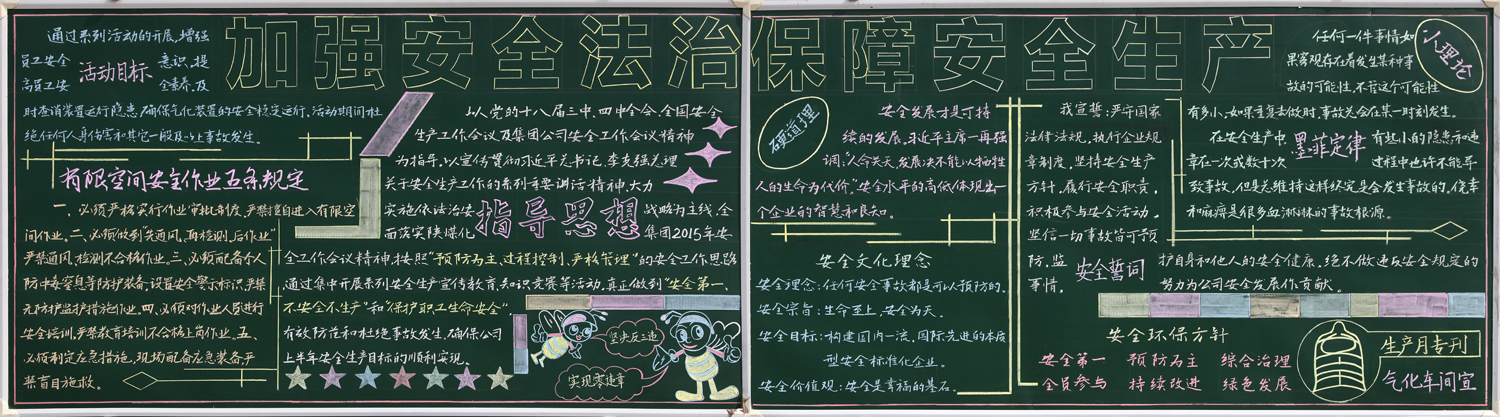 加强安全法治
保障安全生产
通过系列活动的开展,增强
员工安全 意识、提
高员工安 全素养,及
活动目标
时查消装置运行隐患,确保气化装置的安全稳定运行,活动期间杜
绝任何人身伤害和其它一般及以上事故发生。
有限空间安全作业五条规定
一、必须严格实行作业审批制度,严禁擅自进入有限空
间作业。二、必须做到“先通风、再检测、后作业”
严禁通风、检测不合格作业。三、必须配备个人
防中毒窒息等防护装备,设置安全警示标识,严禁
无防护监护措施作业。四、必须对作业人员进行
安全培训,严禁教育培训不合格上岗作业。五、
必须制定应急措施,现场配备应急装备,严
禁盲目施救。
以党的十八届三中、四中全会、全国安全
生产工作会议及集团公司安全工作会议精神
为指导,以宣传贯彻习近平总书记、李克强总理
关于安全生产工作的系列重要讲话精神,大力
实施依法治安 战略为主线,全
面落实陕煤化 集团2015年安
指导思想
全工作会议精神,按照“预防为主、过程控制、严格管理”的安全工作思路
通过集中开展系列安全生产宣传教育、知识竞赛等活动,真正做到“安全第一、
不安全不生产”和“保护职工生命安全”,
有效防范和杜绝事故发生,确保公司
上半年安全生产目标的顺利实现。
坚决反违章
实现零违章
硬道理
安全发展才是可持
续的发展。习近平主席一再强
调,“人命关天,发展决不能以牺牲
人的生命为代价。”安全水平的高低体现出一
个企业的智慧和良知。
安全文化理念
安全理念:任何安全事故都是可以预防的。
安全宗旨:生命至上,安全为天。
安全目标:构建国内一流、国际先进的本质
型安全标准化企业。
安全价值观:安全是幸福的基石。
我宣誓:严守国家
法律法规,执行企业规
章制度,坚持安全生产
方针,履行安全职责,
积极参与安全活动。
坚信一切事故皆可预
防,监 护自身和他人的安全健康,绝不做违反安全规定的
事情。 努力为公司安全发展作贡献。
安全誓词
任何一件事情如
果客观存在着发生某种事
故的可能性,不管这个可能性
有多小,如果重复去做时,事故总会在某一时刻发生。
在安全生产中, 有些小的隐患和违
章在一次或数十次 过程中也许不能导
墨菲定律
致事故,但是总维持这样终究是会发生事故的。侥幸
和麻痹是很多血淋淋的事故根源。
心理论
安全环保方针
安全第一 预防为主 综合治理
全员参与 持续改进 绿色发展
生产月专刊
气化车间宣